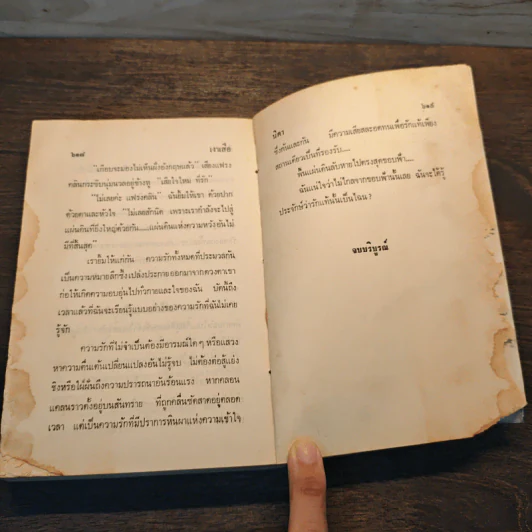 ๖๑๗
เงาเสือ
"เกือบจะมองไม่เห็นฝั่งอังกฤษแล้ว" เสียงแฟรง
คลินกระซิบนุ่มนวลอยู่ข้างหู "เสียใจไหม ที่รัก"
"ไม่เลยค่ะ แฟรงคลิน" ฉันยิ้มให้เขา ด้วยปาก
ด้วยตาและหัวใจ "ไม่เลยสักนิด เพราะเรากำลังจะไปสู่
แผ่นดินที่ยิ่งใหญ่ด้วยกัน....แผ่นดินแห่งความหวังอันไม่
มีที่สิ้นสุด"
เรายิ้มให้แก่กัน ความรักทั้งหมดที่ประมวลกัน
เป็นความหมายลึกซึ้งเปล่งประกายออกมาจากดวงตาเขา
ก่อให้เกิดความอบอุ่นไปทั่วกายและใจของฉัน บัดนี้ถึง
เวลาแล้วที่ฉันจะเรียนรู้แบบอย่างของความรักที่ฉันไม่เคย
รู้จัก
ความรักที่ไม่จำเป็นต้องมีอารมณ์ใดๆ หรือแสวง
หาความตื่นเต้นเปลี่ยนแปลงอันไม่รู้จบ ไม่ต้องต่อสู้แย่ง
ชิงหรือใฝ่ฝันถึงความปรารถนาอันร้อนแรง หากคลอน
แคลนราวตั้งอยู่บนสันทราย ที่ถูกคลื่นซัดสาดอยู่ตลอด
เวลา แต่เป็นความรักที่มีปราการหินผาแห่งความเข้าใจ
๖๑๘
นิดา
ซึ่งกันและกัน มีความเสียสละอดทนเพื่อรักแท้เพียง
สถานเดียวเป็นที่รองรับ....
พื้นแผ่นดินลับหายไปตรงสุดขอบฟ้า....
ฉันแน่ใจว่าไม่ไกลจากขอบฟ้านั้นเลย ฉันจะได้รู้
ประจักษ์ว่ารักแท้นั้นเป็นไฉน ?
จบบริบูรณ์